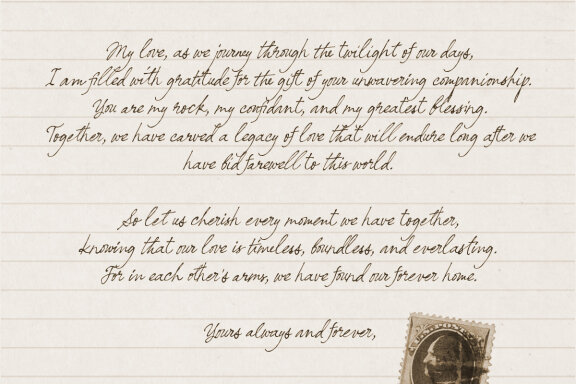 My love, as we journey through the twilight of our days,
I am filled with gratitude for the gift of your unwavering companionship.
You are my rock, my confidant, and my greatest blessing.
Together, we have carved a legacy of love that will endure long after we
have bid farewell to this world.
So let us cherish every moment we have together,
knowing that our love is timeless, boundless, and everlasting.
For in each other's arms, we have found our forever home.
Yours always and forever,